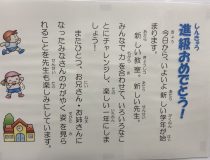 進級おめでとう
しんきゅう
今日から、いよいよ新しい学年が始
まります。
新しい教室、新しい先生。
みんなで力を合わせて、いろいろなこ
とにチャレンジし、楽しい一年にしま
しょう！
またひとつ、お兄さん・お姉さんに
なったみなさんのかがやく姿を見ら
れることを先生も楽しみにしています。